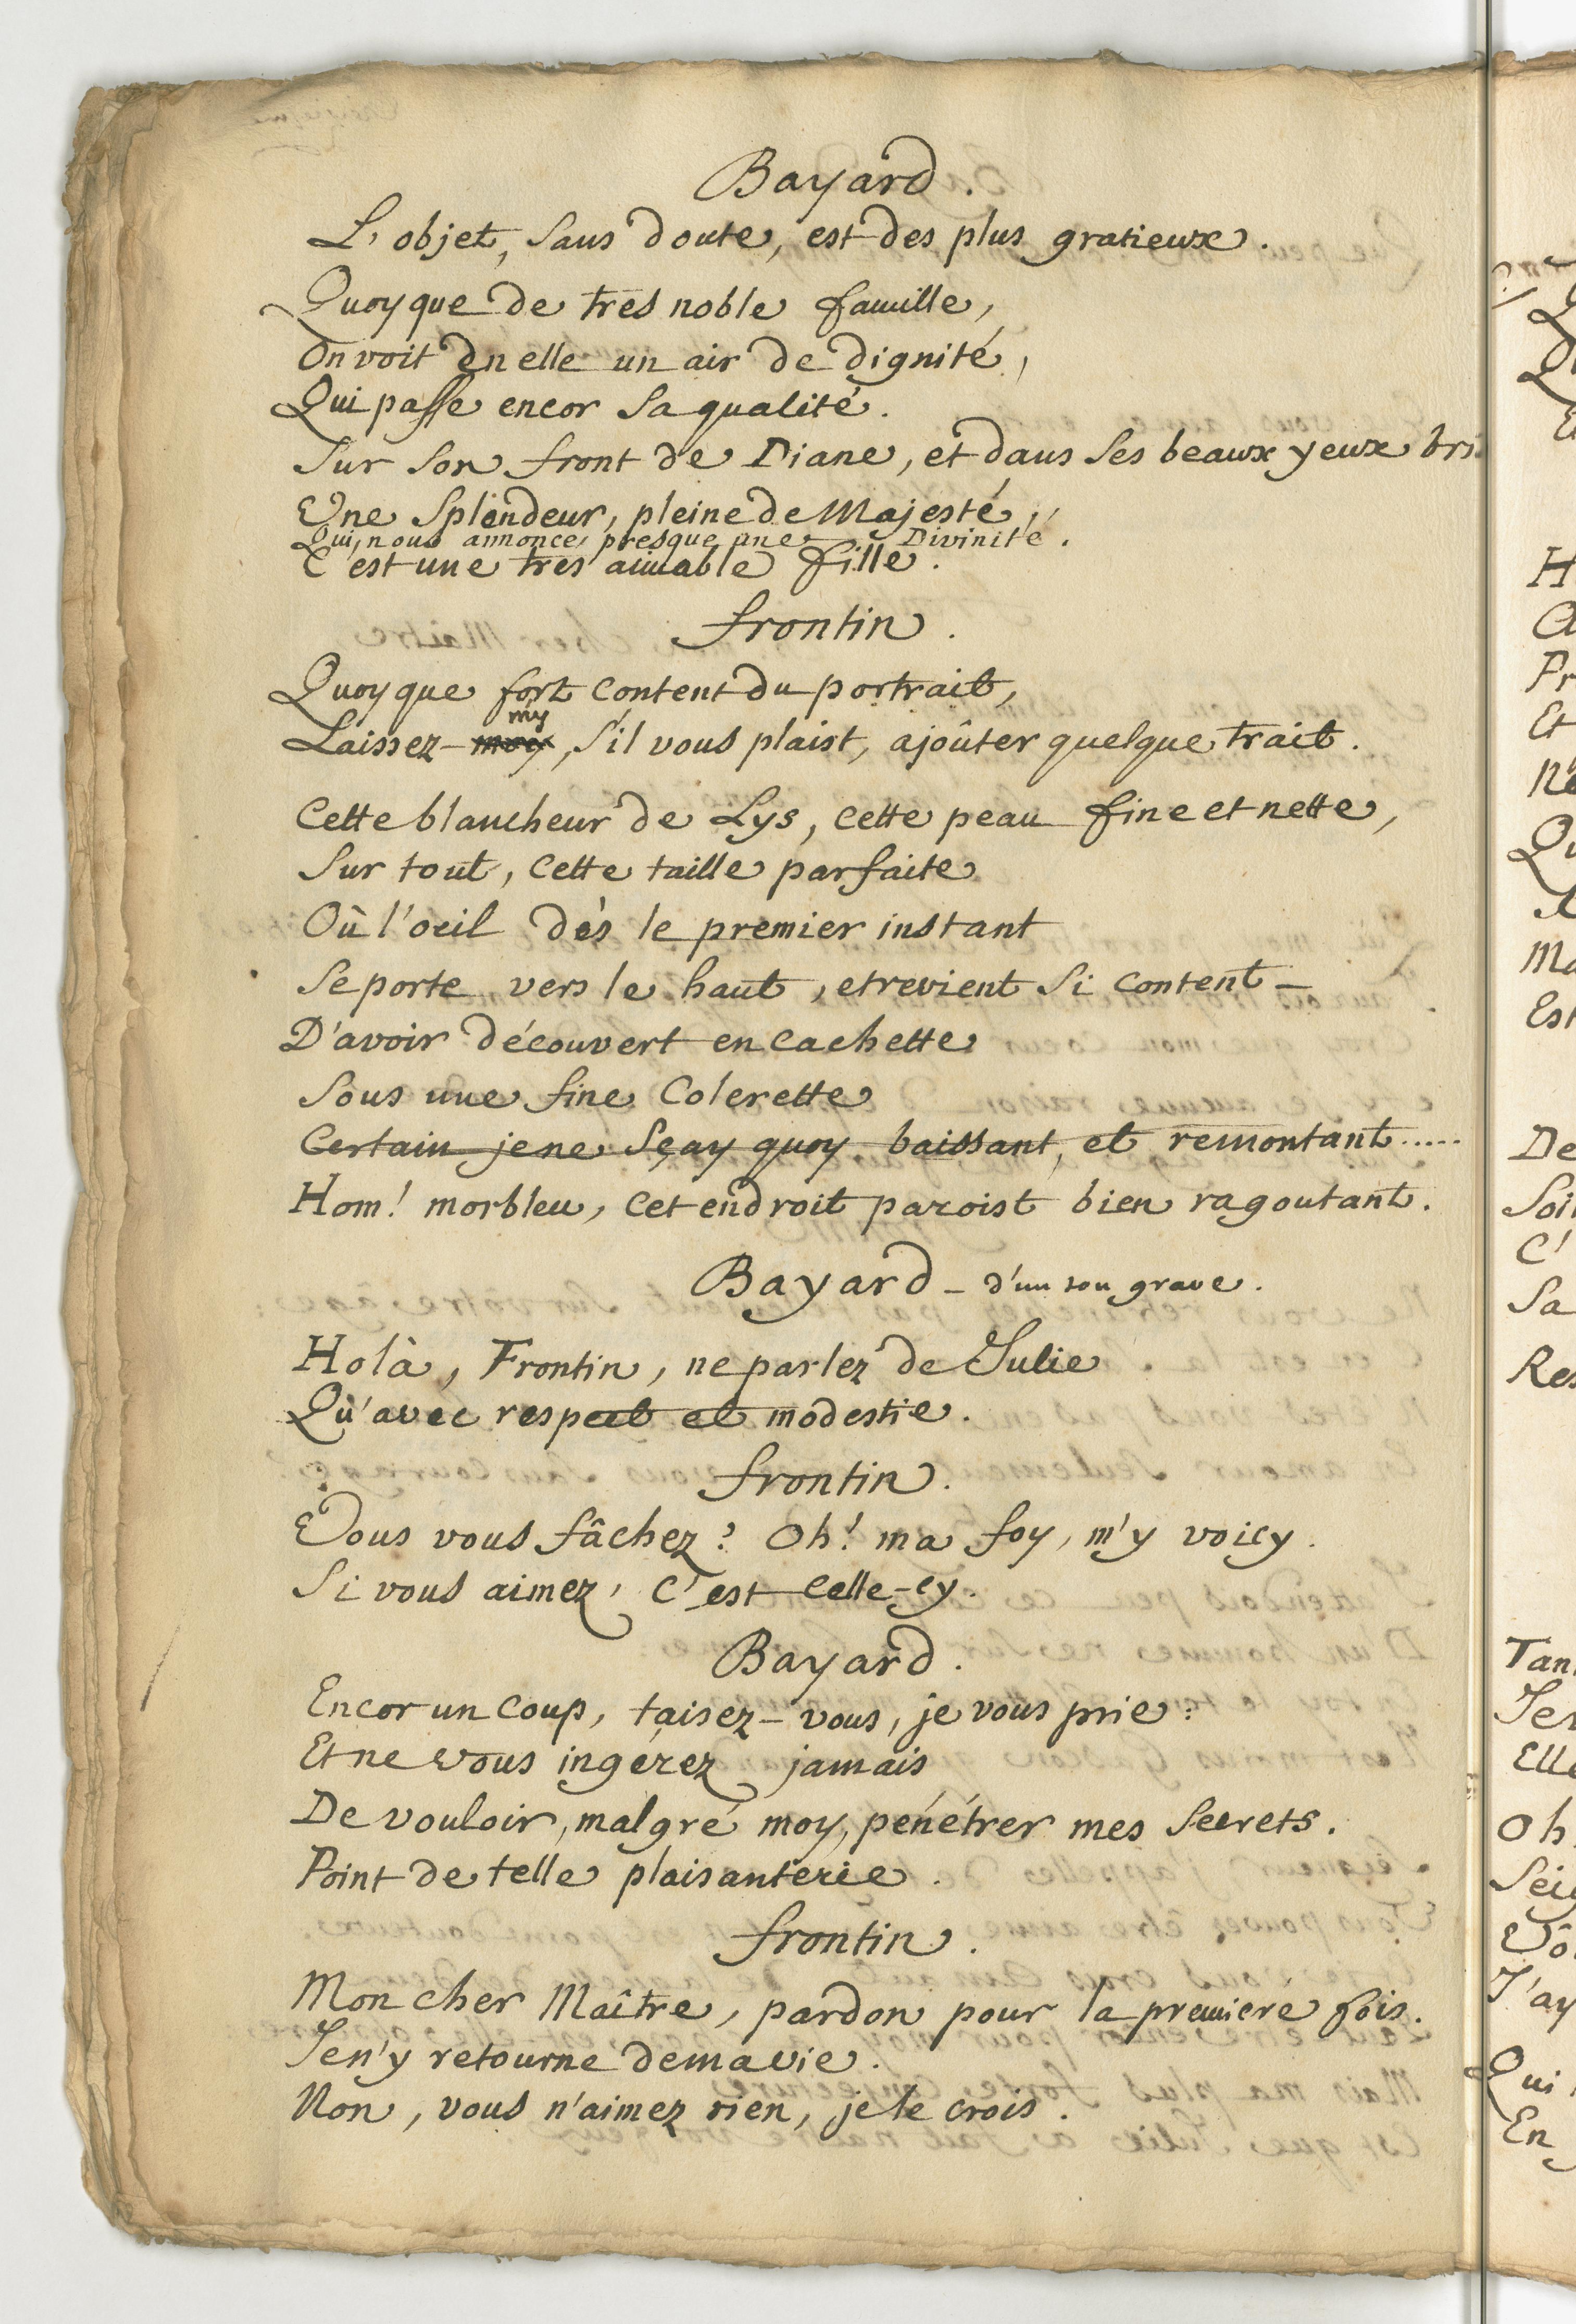 Bayard.
L'objet, sans doute, est des plus gratieux.
Quoyque de tres noble famille,
On voit en elle un air de dignité,
Qui passe encor sa qualité.
Sur son front de Diane, et dans ses beaux yeux bri
Une splendeur, pleine de Majesté,
Qui nous annonce presque une Divinité.
C'est une tres aimable fille.
frontin.
Quoyque fort content du portrait,
my
Laissez-moy, s'il vous plaist, ajoûter quelque trait.
Cette blancheur de Lys, cette peau fine et nette,
Sur tout, cette taille parfaite
Où l'oeil dès le premier instant
Se porte vers le haut, et revient si content-
D'avoir découvert en cachette
Sous une fine Colerette
Certain je ne sçay quoy baissant, et remontant.....
Hom! morbleu, cet endroit paroist bien ragoutant.
Bayard - d'un ton grave.
Holà, Frontin, ne parlez de Julie
Qu'avec respect et modestie.
frontin.
Vous vous fâchez? Oh! ma foy, m'y voicy.
Si vous aimez, C'est celle-cy.
Bayard.
Encor un coup, taisez-vous, je vous prie:
Et ne vous ingérez jamais
De vouloir, malgré moy, pénétrer mes secrets.
Point de telle plaisanterie.
frontin.
Mon cher Maître, pardon pour la premiere fois.
Je n'y retourne de ma vie.
Non, vous n'aimez rien, je le crois.